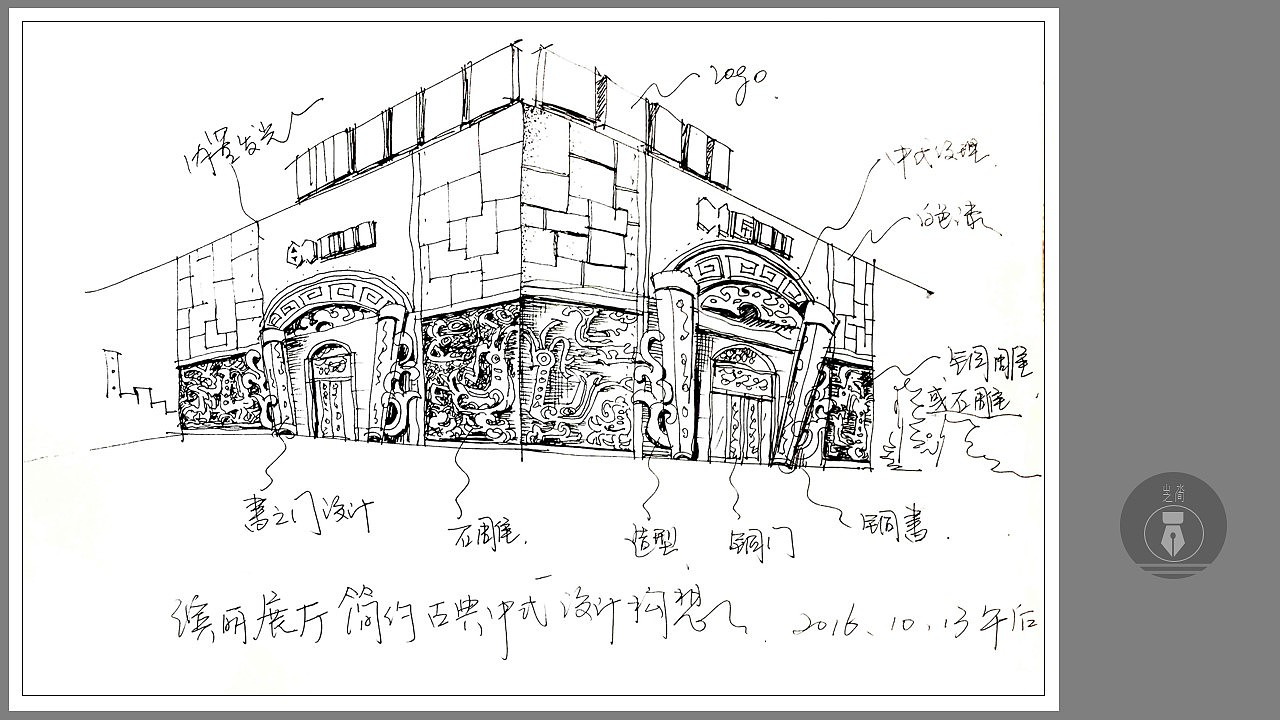 logo
内置发光
中式纹理.
白色漆
铜雕
或石雕
書之门设计
石雕.
造型
铜门
铜書.
展厅简约古典中式设计构想 2016.10.13午后
岂简